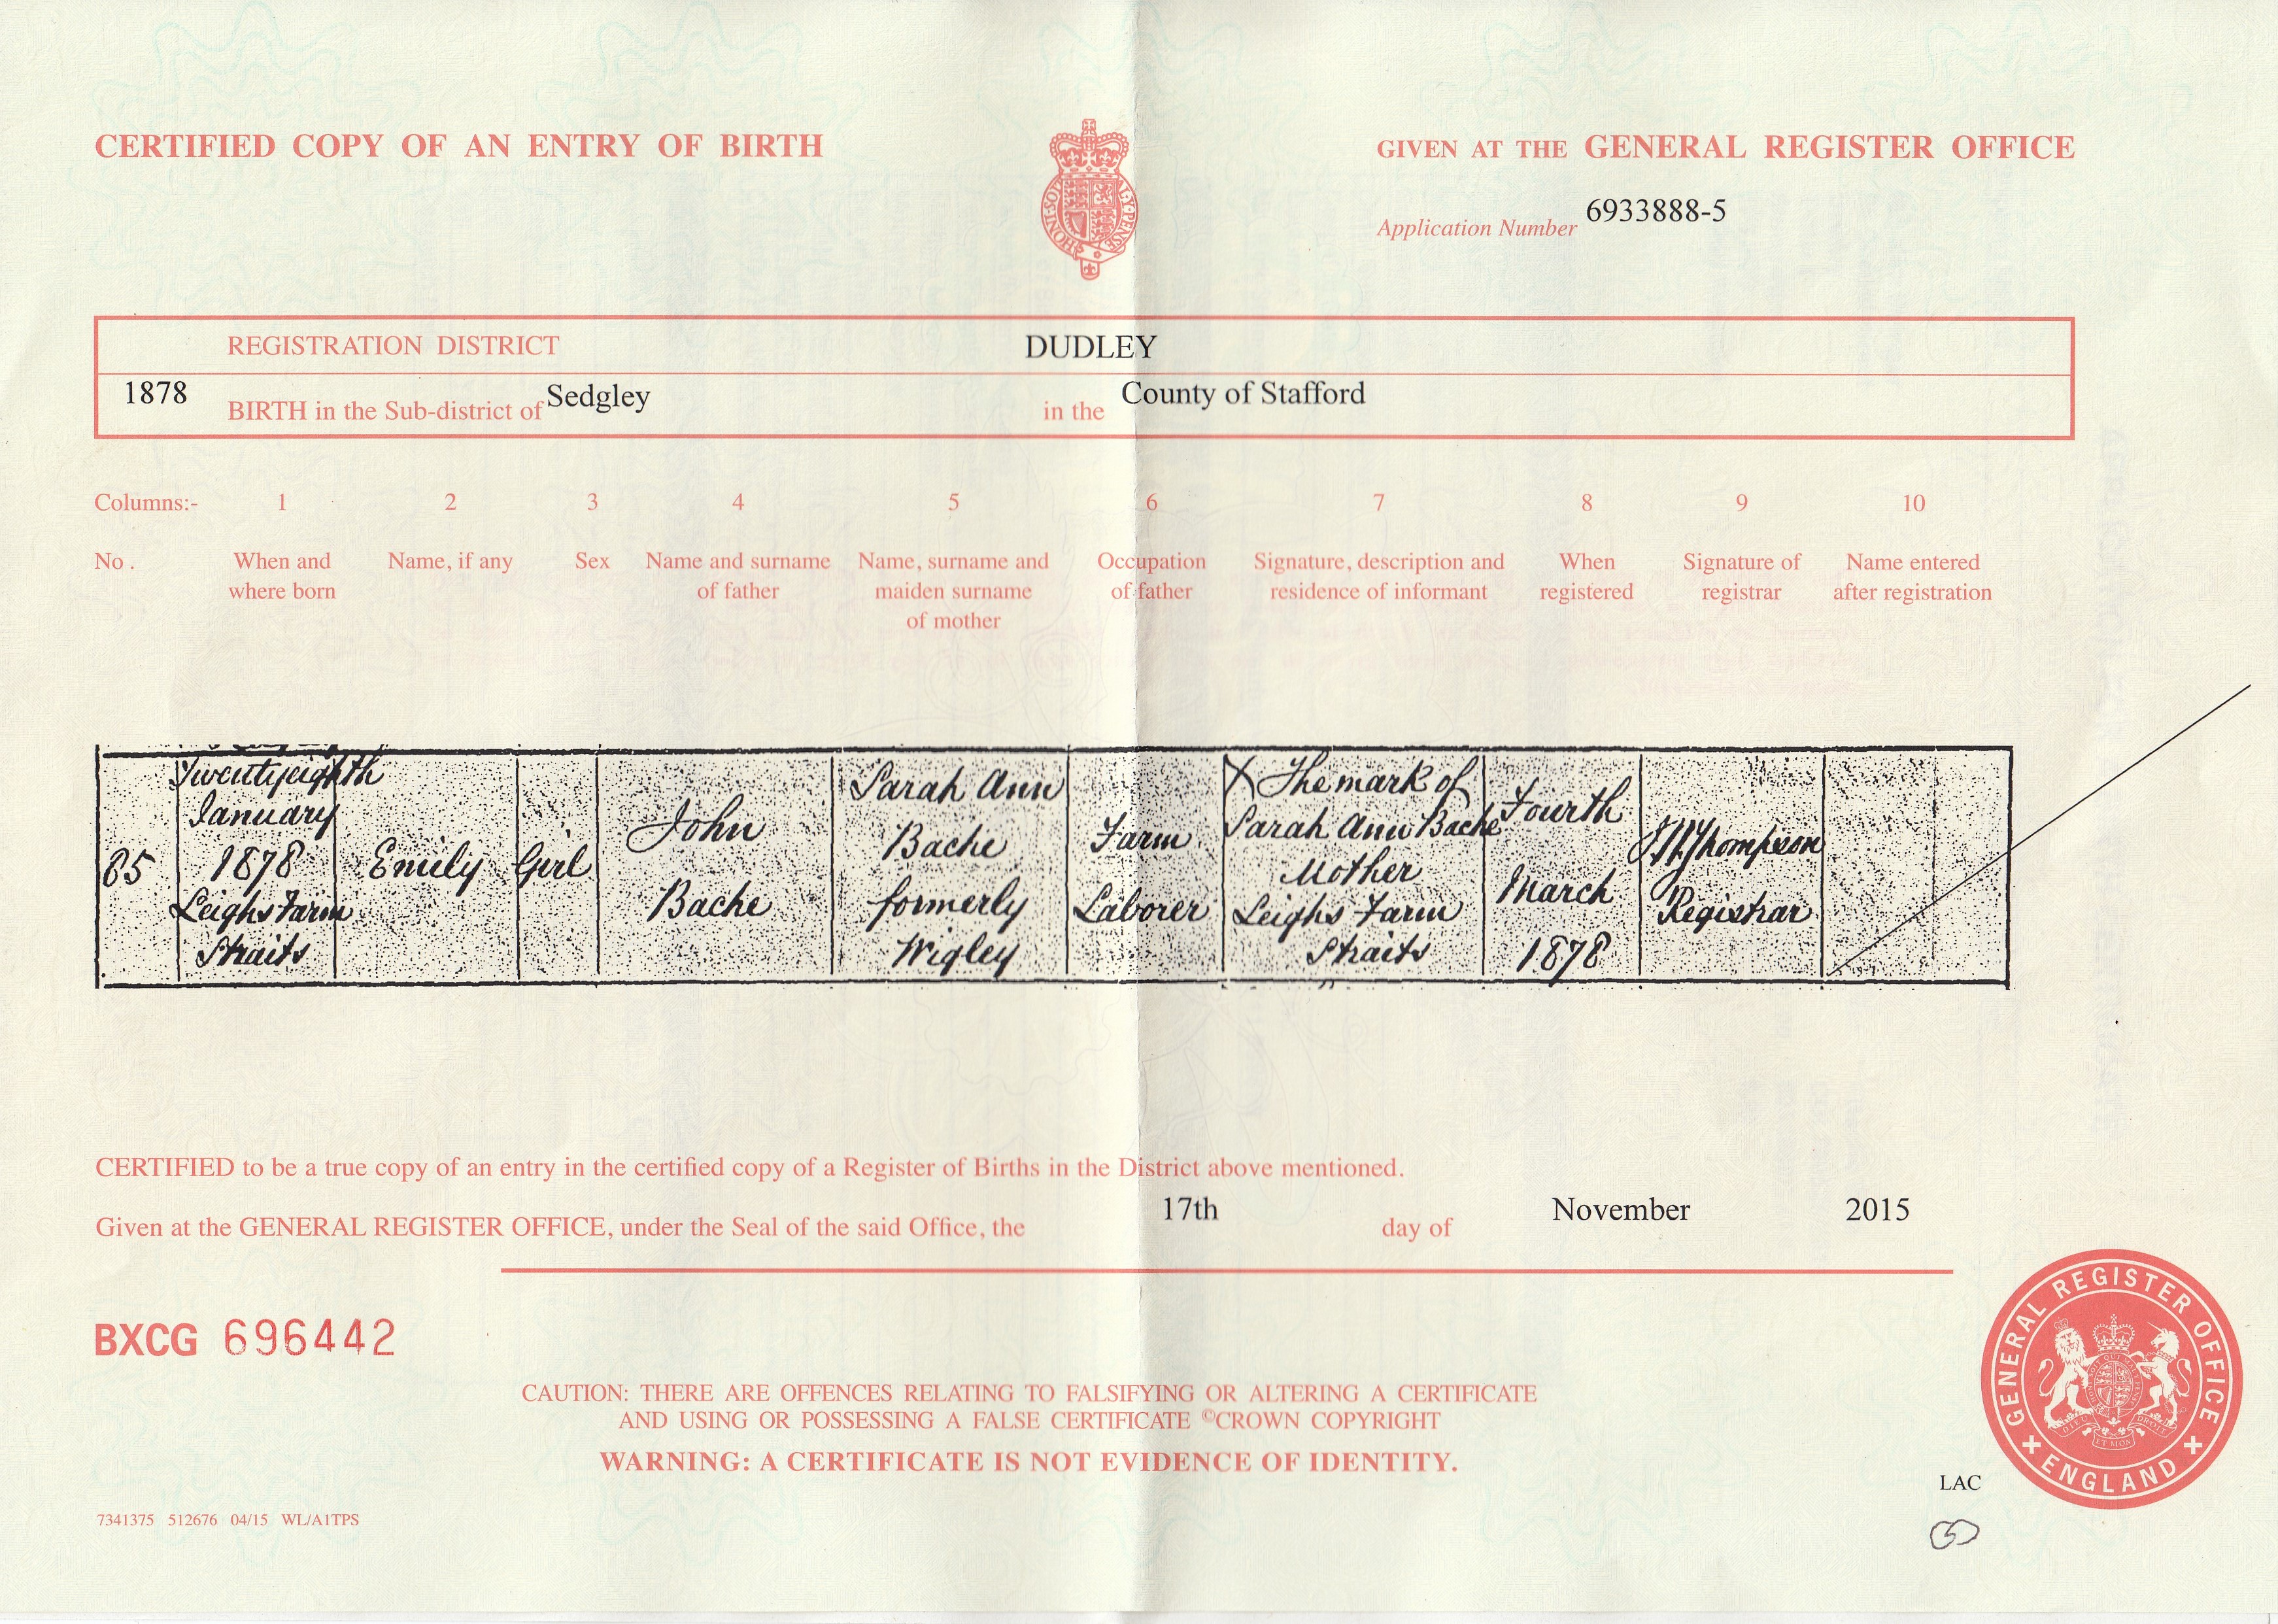 CERTIFIED COPY OF AN ENTRY OF BIRTH
GIVEN AT THE GENERAL REGISTER OFFICE
Application Number 6933888-5
REGISTRATION DISTRICT DUDLEY
1878 BIRTH in the Sub-district of Sedgley in the County of Stafford
Columns:- 1 2 3 4 5 6 7 8 9 10
No. When and where born Name, if any Sex Name and surname of father Name, surname and maiden surname of mother Occupation of father Signature, description and residence of informant When registered Signature of registrar Name entered after registration
85
Twentyeighth
January
1878
Leighs Farm
Straits
Emily
Girl
John
Bache
Sarah Ann
Bache
formerly
Wigley
Farm
Laborer
X The mark of
Sarah Ann Bache
Mother
Leighs Farm
Straits
Fourth
March
1878
Thompson
Registrar
CERTIFIED to be a true copy of an entry in the certified copy of a Register of Births in the District above mentioned.
Given at the GENERAL REGISTER OFFICE, under the Seal of the said Office, the 17th day of November 2015
BXCG 696442
CAUTION: THERE ARE OFFENCES RELATING TO FALSIFYING OR ALTERING A CERTIFICATE
AND USING OR POSSESSING A FALSE CERTIFICATE ©CROWN COPYRIGHT
WARNING: A CERTIFICATE IS NOT EVIDENCE OF IDENTITY.
GENERAL REGISTER OFFICE
ENGLAND
LAC
7341375 512676 04/15 WL/A1TPS